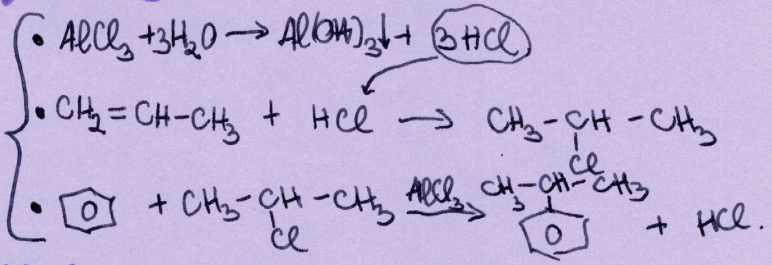 • AlCl₃ + 3H₂O → Al(OH)₃↓ + 3HCl
• CH₂=CH–CH₃ + HCl → CH₃–CH–CH₃
Cl
• + CH₃–CH–CH₃ AlCl₃ → CH₃–CH–CH₃ + HCl.
Cl